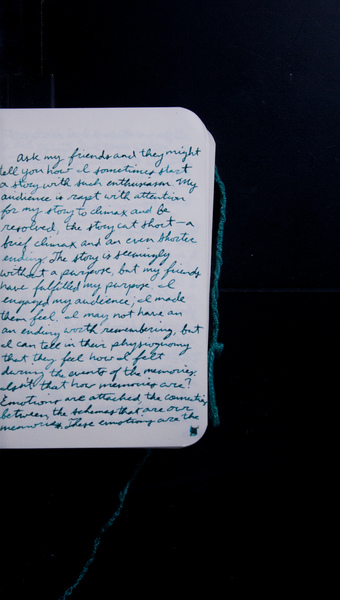 Ask my friends and they might
tell you how I sometimes start
a story with such enthusiasm. My
audience is rapt with attention
for my story to climax and be
resolved, the story cut short - a
brief climax and an even shorter
ending. The story is seemingly
without a purpose, but my friends
have fulfilled my purpose. I
engaged my audience; I made
them feel. I may not have an
an ending worth remembering, but
I can tell in their physiognomy
that they feel how I felt
during the events of the memories.
Isn't that how memories are?
Emotions are attached, the
between the schemas that are our
memories. These emotions are the